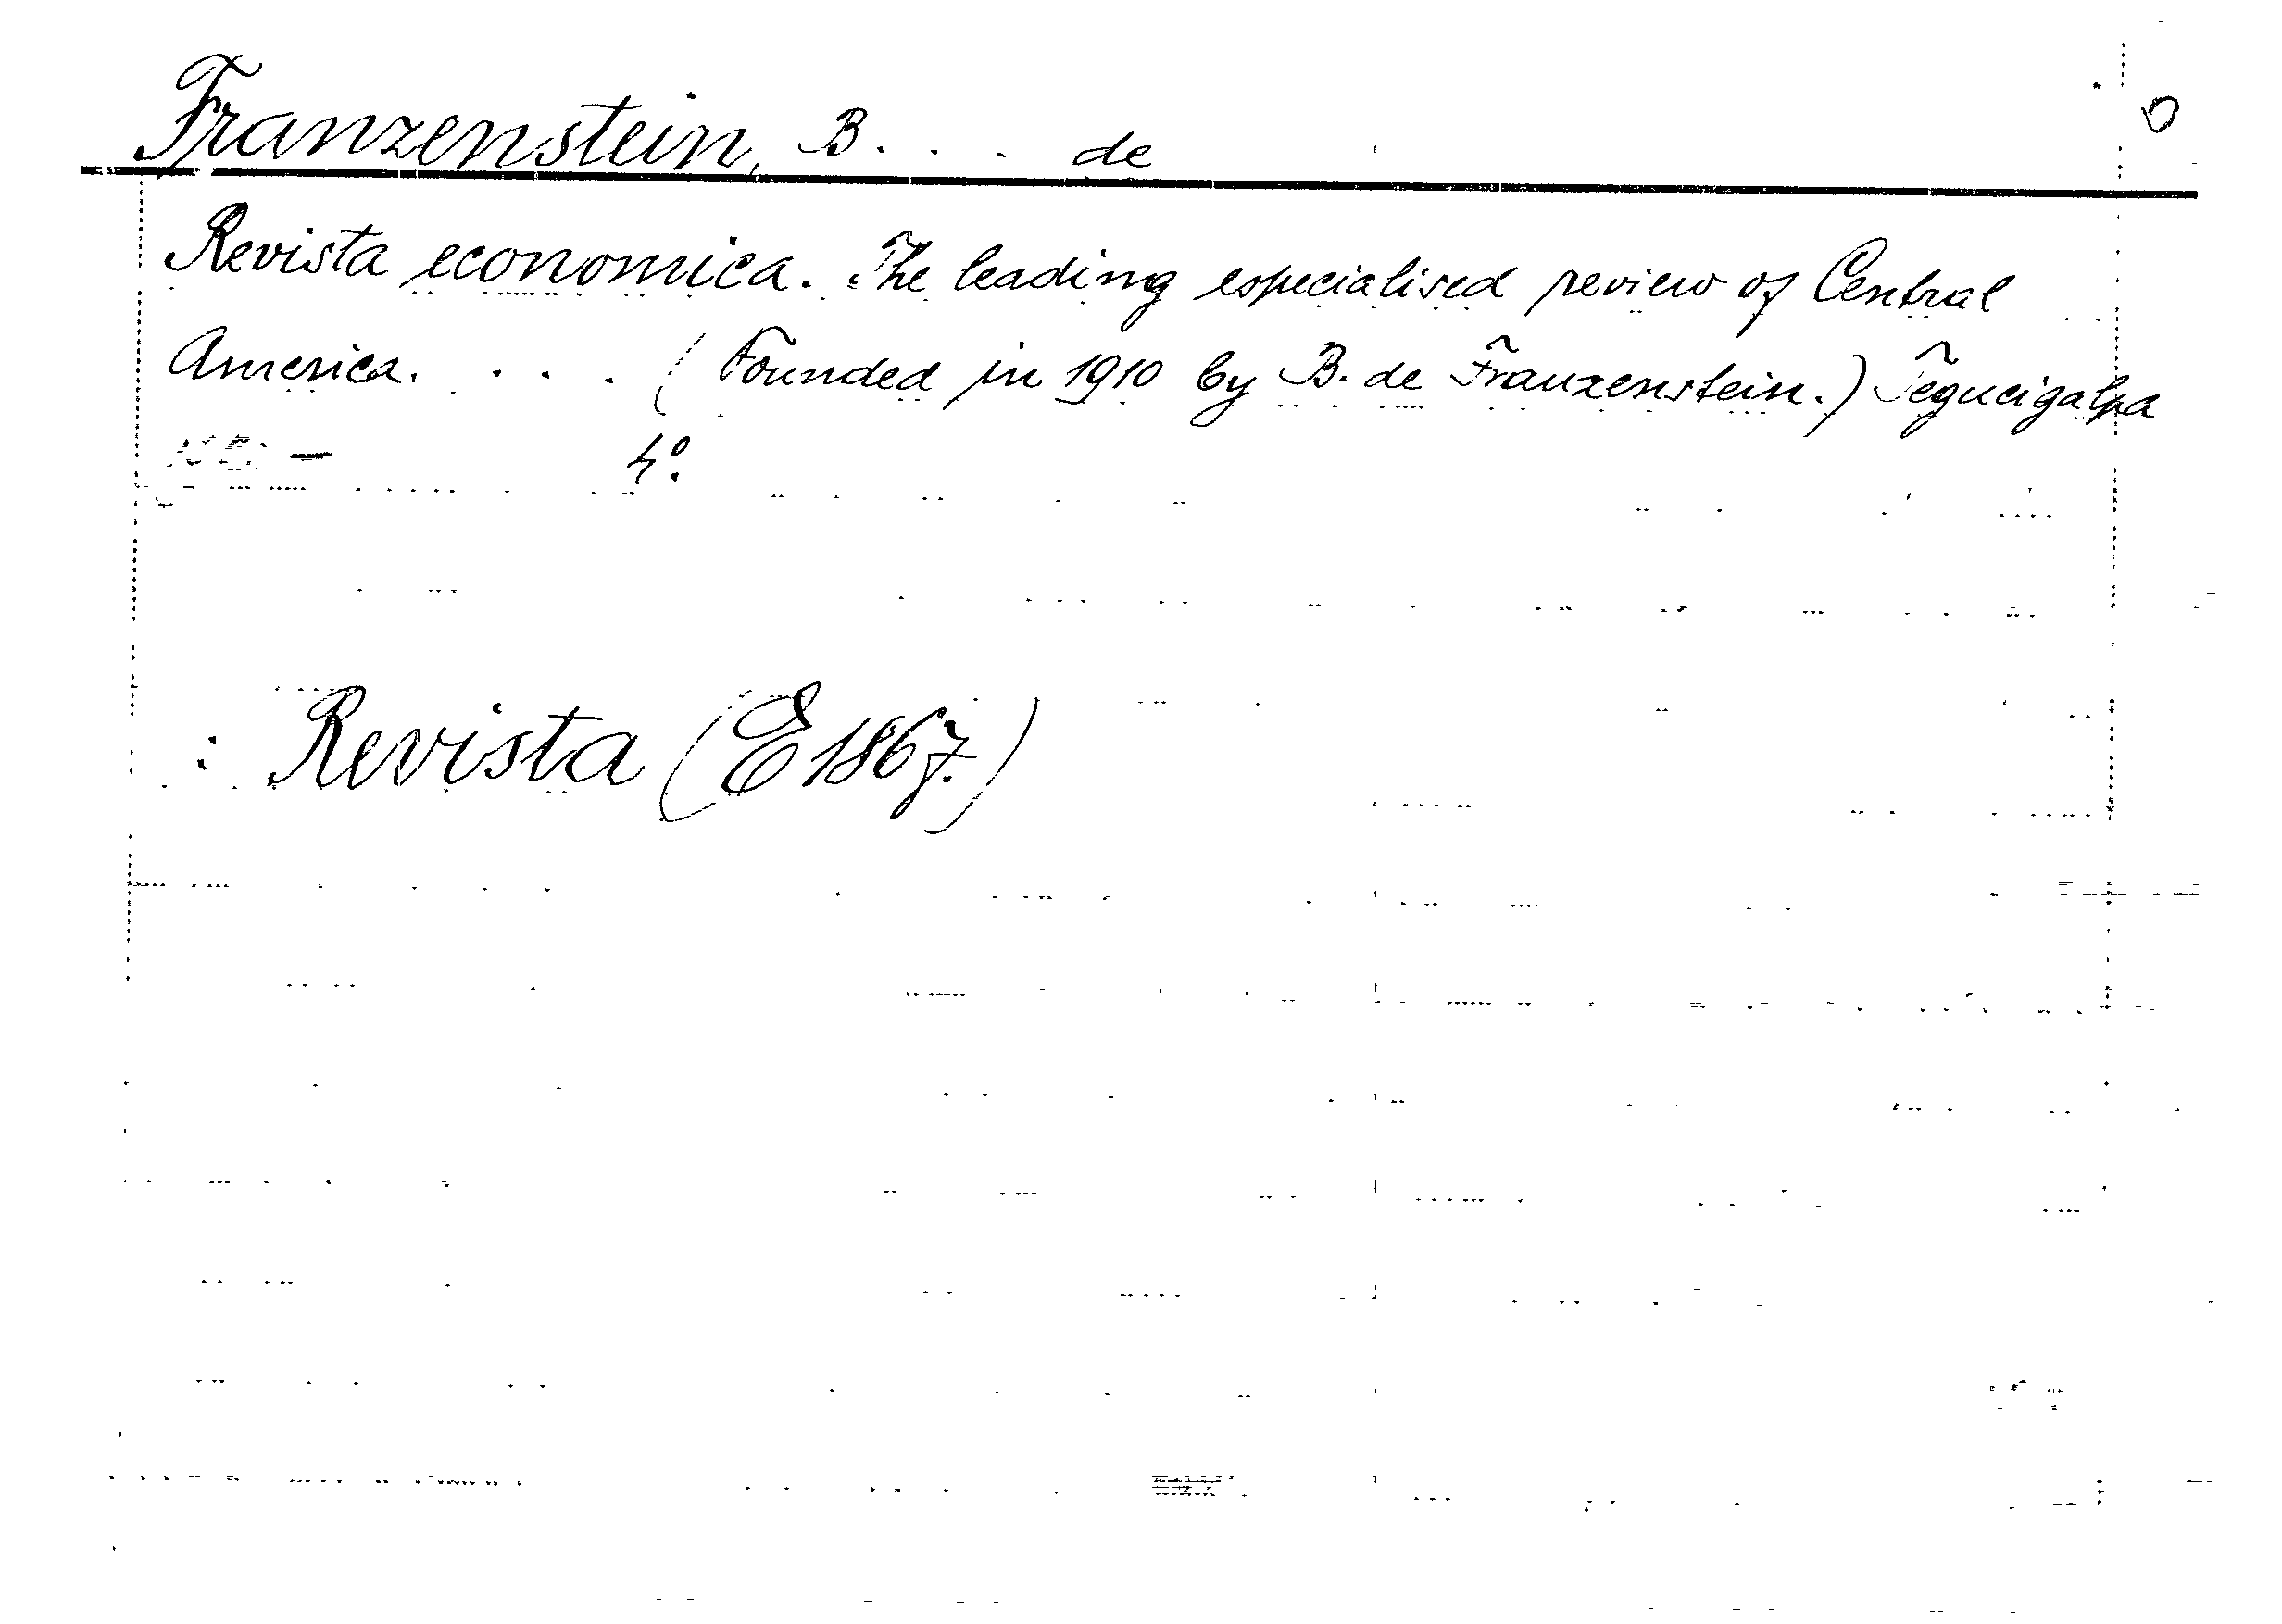 Franzenstein, B. . . de
Revista economica. The leading especialised review of Central
America. . . . (Founded in 1910 by B. de Franzenstein.) Tegucigalpa
— 4º.
: Revista (E 1867.)